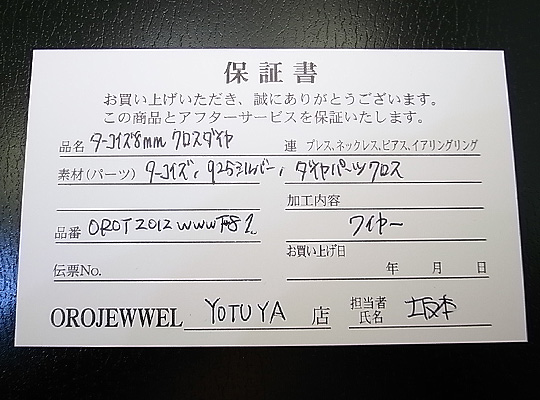 保証書
お買い上げいただき、誠にありがとうございます。
この商品とアフターサービスを保証いたします。
品名 ターコイズ8mm クロスダイヤ 連 ブレス、ネックレス、ピアス、イアリングリング
素材(パーツ) ターコイズ, 925シルバー, ダイヤパーツクロス
加工内容
品番 OROT2012WWW ワイヤー
お買い上げ日
伝票No. 年 月 日
OROJEWWEL YOTUYA 店 担当者氏名 坂本